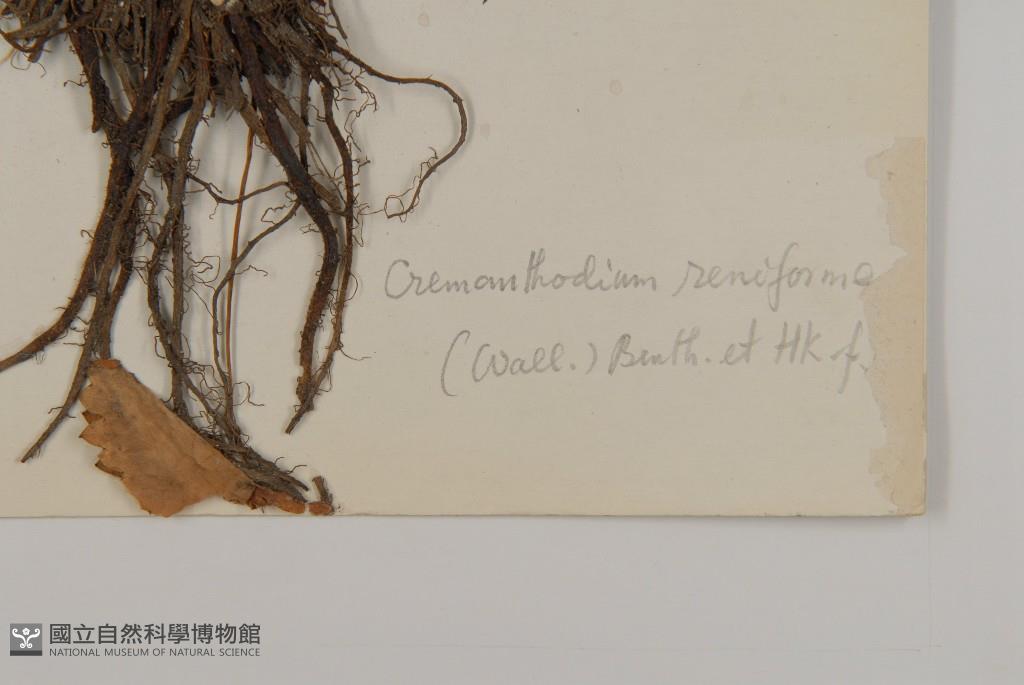 Cremanthodium reniforme
(Wall.) Benth. et Hk. f.
國立自然科學博物館
NATIONAL MUSEUM OF NATURAL SCIENCE